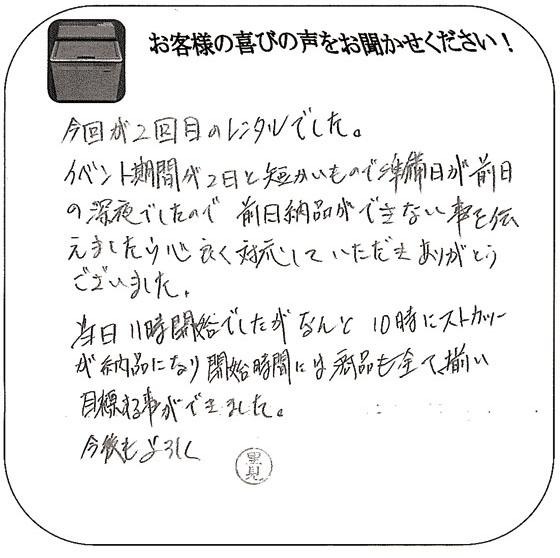 お客様の喜びの声をお聞かせください!
今回が2回目のレンタルでした。
イベント期間が2日と短かいもので準備日が前日
の深夜でしたので 前日納品ができない事を伝
えましたら心良く対応していただきありがとう
ございました。
当日11時開始でしたがなんと 10時にストッカー
が納品になり開始時間には商品も全て揃い
目標る事ができました。
今後もよろしく
里見